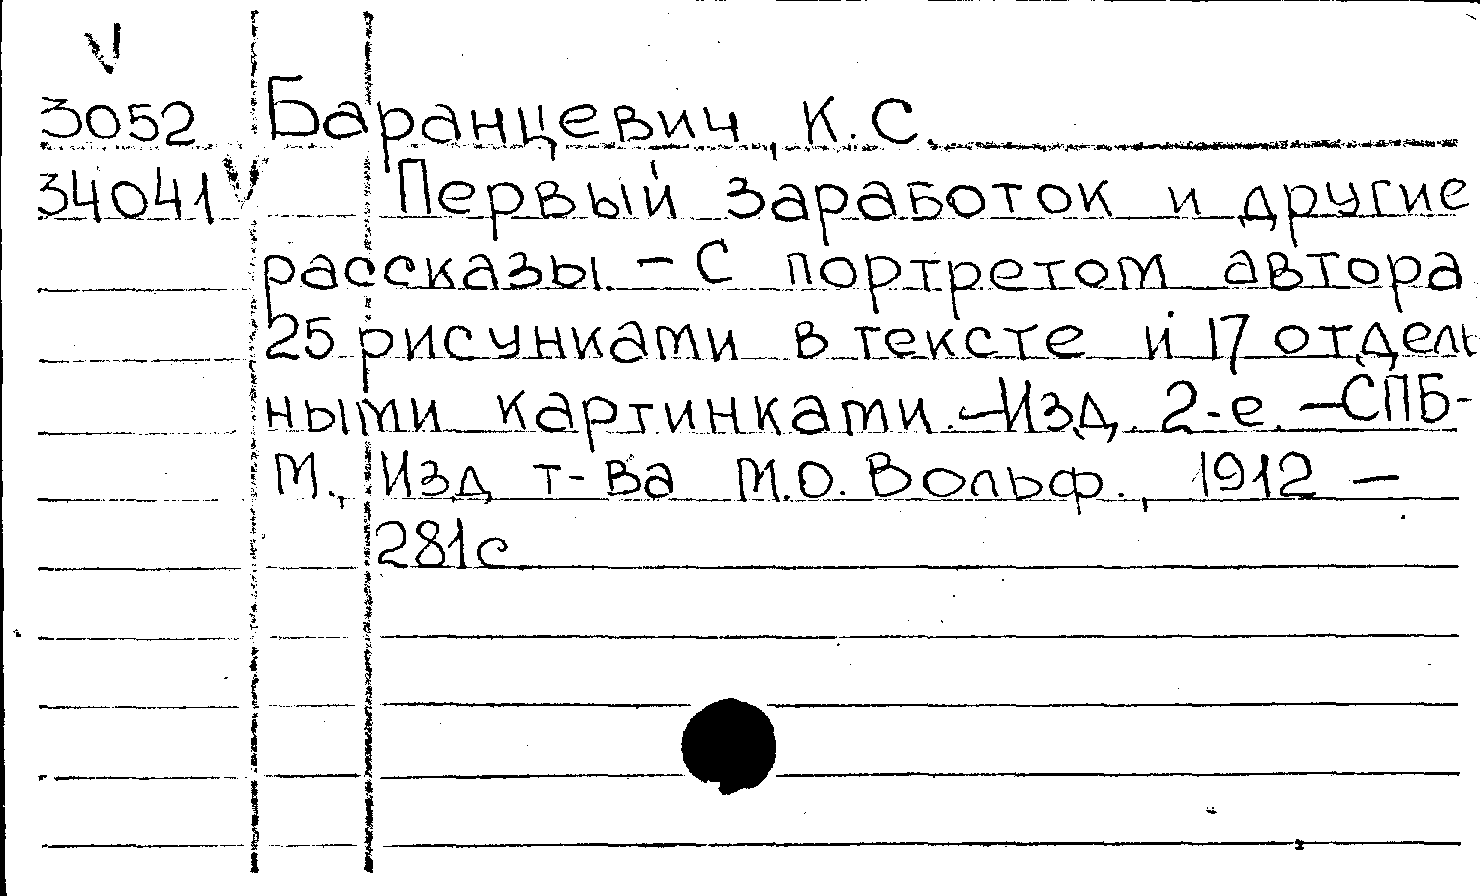 V
3052 Баранцевич, К.С.
34041 V Первый заработок и другие
рассказы. – С портретом автора
25 рисунками в тексте и 17 отдель
ными картинками. – Изд. 2-е. – СПБ-
М., Изд т-ва М.О. Вольф., 1912 –
281с